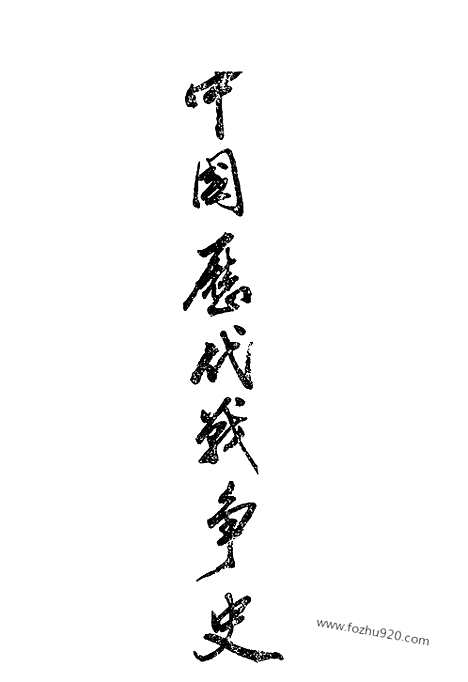 中国歷代战争史
www.fozhu920.com